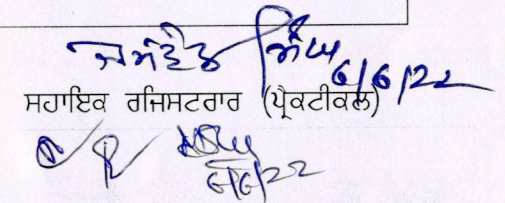 ਜਸਵੰਤ ਸਿੰਘ 6/6/22
ਸਹਾਇਕ ਰਜਿਸਟਰਾਰ (ਪ੍ਰੈਕਟੀਕਲ)
6/6/22